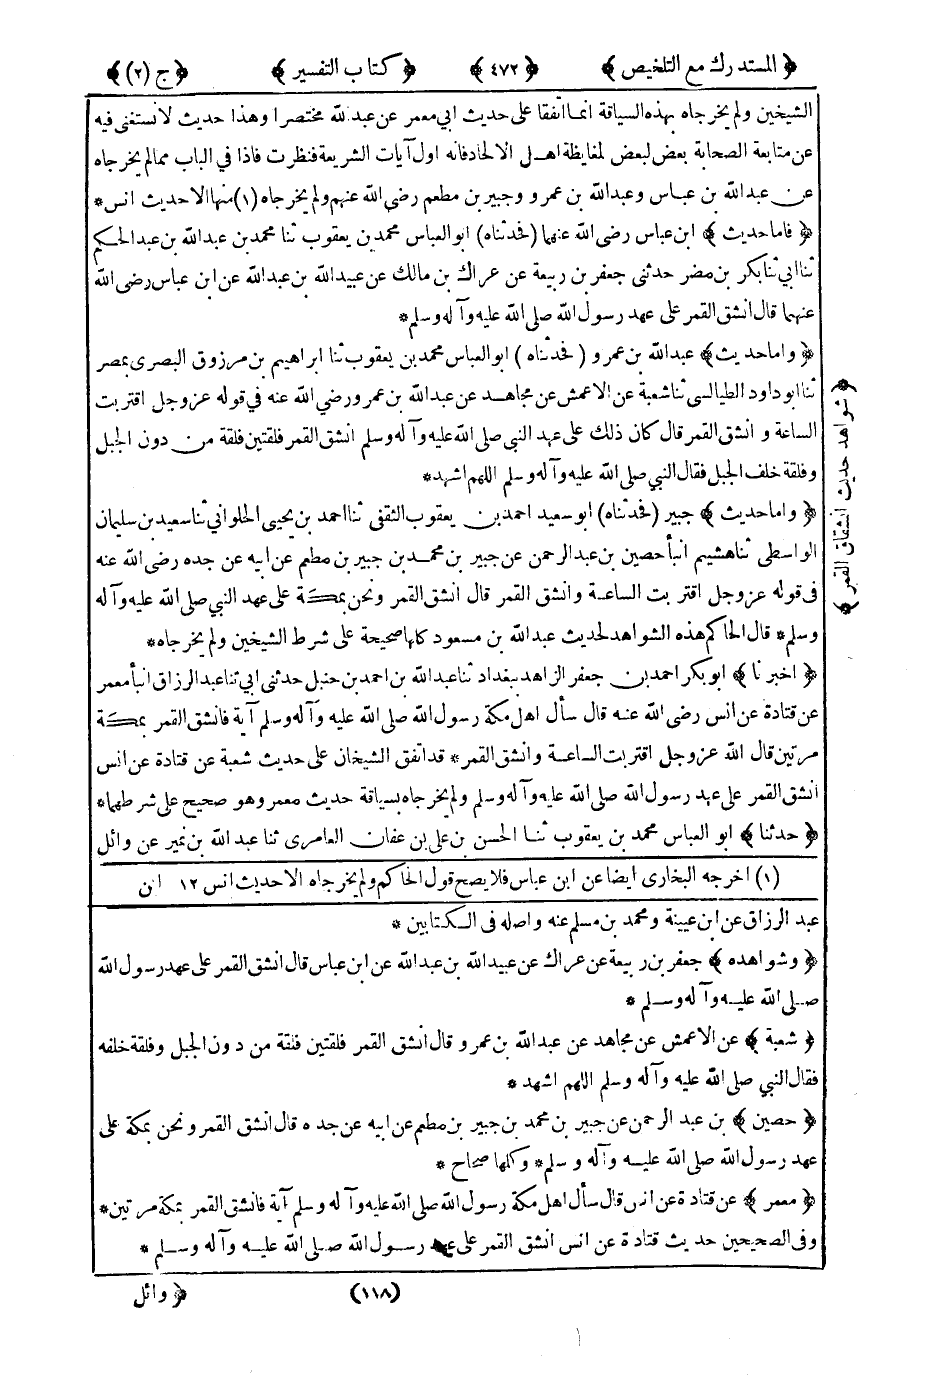 ﴿ المستدرك مع التلخيص ﴾ ﴿ ٤٧٢ ﴾ ﴿ كتاب التفسير ﴾ ﴿ ج (٢) ﴾
الشيخين ولم يخرجاه بهذه السياقة انما اتفقا على حديث ابي معمر عن عبد الله مختصرا وهذا حديث لا نستغنى فيه
عن متابعة الصحابة بعض لبعض لمغايظة اهل الالحاد فانه اول آيات الشريعة فنظرت فاذا في الباب مما لم يخرجاه
عن عبد الله بن عباس وعبد الله بن عمرو وجبير بن مطعم رضى الله عنهم ولم يخرجاه (١) منها الا حديث انس *
﴿ فاما حديث ﴾ ابن عباس رضى الله عنهما (فحدثناه) ابو العباس محمد بن يعقوب ثنا محمد بن عبد الله بن عبد الحكم
ثنا ابي ثنا بكر بن مضر حدثني جعفر بن ربيعة عن عراك بن مالك عن عبيد الله بن عبد الله عن ابن عباس رضى الله
عنهما قال انشق القمر على عهد رسول الله صلى الله عليه وآله وسلم *
﴿ واما حديث ﴾ عبد الله بن عمرو ( فحدثناه ) ابو العباس محمد بن يعقوب ثنا ابراهيم بن مرزوق البصرى بمصر
ثنا ابو داود الطيالسى ثنا شعبة عن الاعمش عن مجاهد عن عبد الله بن عمرو رضي الله عنه في قوله عز وجل اقتربت
الساعة و انشق القمر قال كان ذلك على عهد النبي صلى الله عليه وآله وسلم انشق القمر فلقتين فلقة من دون الجبل
وفلقة خلف الجبل فقال النبي صلى الله عليه وآله وسلم اللهم اشهد *
﴿ واما حديث ﴾ جبير (فحدثناه) ابو سعيد احمد بن يعقوب الثقفى ثنا احمد بن يحيى الحلواني ثنا سعيد بن سليمان
الواسطى ثنا هشيم انبأ حصين بن عبد الرحمن عن جبير بن محمد بن جبير بن مطعم عن ابيه عن جده رضى الله عنه
فى قوله عز وجل اقتربت الساعة وانشق القمر قال انشق القمر ونحن بمكة على عهد النبي صلى الله عليه وآله
وسلم * قال الحاكم هذه الشواهد لحديث عبد الله بن مسعود كلها صحيحة على شرط الشيخين ولم يخرجاه *
﴿ اخبرنا ﴾ ابو بكر احمد بن جعفر الزاهد ببغداد ثنا عبد الله بن احمد بن حنبل حدثنى ابي ثنا عبد الرزاق انبأ معمر
عن قتادة عن انس رضى الله عنه قال سأل اهل مكة رسول الله صلى الله عليه وآله وسلم آية فانشق القمر بمكة
مرتين قال الله عز وجل اقتربت الساعة وانشق القمر * قد اتفق الشيخان على حديث شعبة عن قتادة عن انس
انشق القمر على عهد رسول الله صلى الله عليه وآله وسلم ولم يخرجاه بسياقة حديث معمر وهو صحيح على شرطهما *
﴿ حدثنا ﴾ ابو العباس محمد بن يعقوب ثنا الحسن بن على بن عفان العامرى ثنا عبد الله بن نمير عن وائل
(١) اخرجه البخارى ايضا عن ابن عباس فلا يصح قول الحاكم ولم يخرجاه الا حديث انس ١٢ ابن
عبد الرزاق عن ابن عيينة ومحمد بن مسلم عنه واصله فى الكتابين *
﴿ وشواهده ﴾ جعفر بن ربيعة عن عراك عن عبيد الله بن عبد الله عن ابن عباس قال انشق القمر على عهد رسول الله
صلى الله عليه وآله وسلم *
﴿ شعبة ﴾ عن الاعمش عن مجاهد عن عبد الله بن عمرو قال انشق القمر فلقتين فلقة من دون الجبل وفلقة خلفه
فقال النبي صلى الله عليه وآله وسلم اللهم اشهد *
﴿ حصين ﴾ بن عبد الرحمن عن جبير بن محمد بن جبير بن مطعم عن ابيه عن جده قال انشق القمر ونحن بمكة على
عهد رسول الله صلى الله عليه وآله وسلم * وكلها صحاح *
﴿ معمر ﴾ عن قتادة عن انس قال سأل اهل مكة رسول الله صلى الله عليه وآله وسلم آية فانشق القمر بمكة مرتين *
وفى الصحيحين حديث قتادة عن انس انشق القمر على عهد رسول الله صلى الله عليه وآله وسلم *
(١١٨) ﴿ وائل
﴿ شواهد حديث انشقاق القمر ﴾